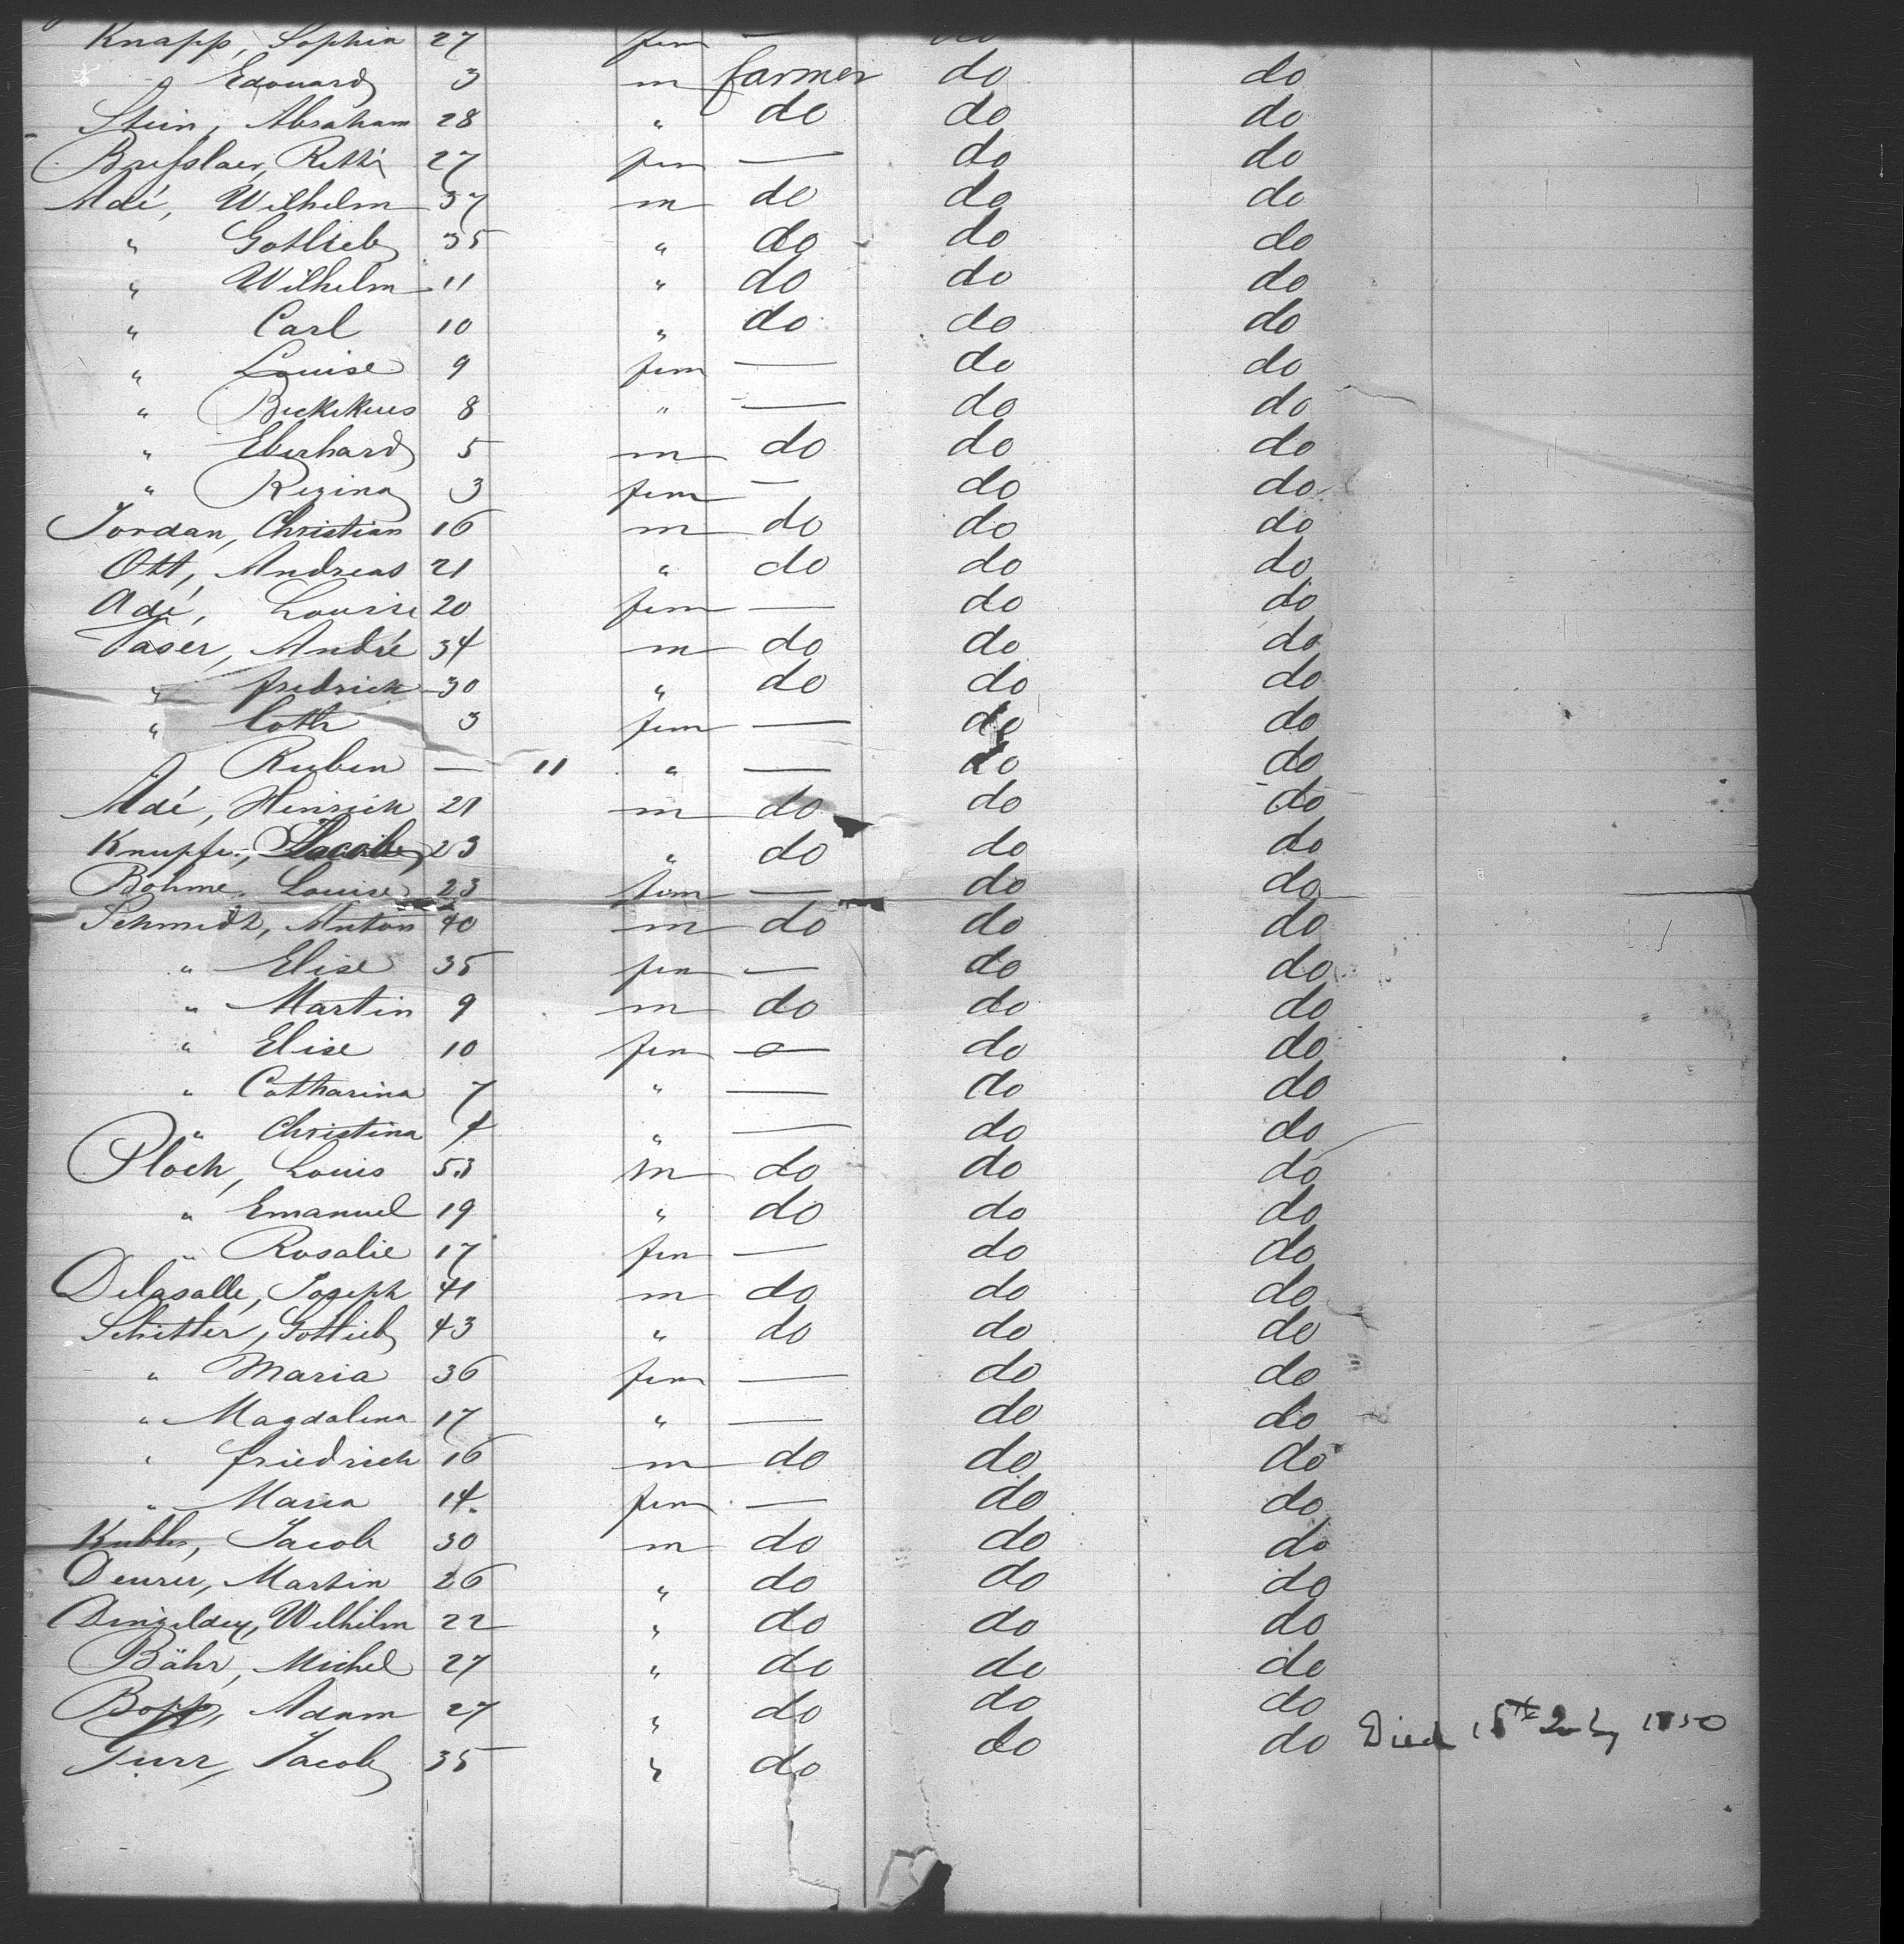 Knapp, Sophia 27 fem — do
" Edouard 3 m farmer do do
Stein, Abraham 28 " do do do
Bresslaer, Retti 27 fem — do do
Adé, Wilhelm 37 m do do do
" Gotlieb 35 " do do do
" Wilhelm 11 " do do do
" Carl 10 " do do do
" Louise 9 fem — do do
" 8 " — do do
" Eberhard 5 m do do do
" Regina 3 fem — do do
Jordan, Christian 16 m do do do
Ott, Andreas 21 " do do do
Adé, Louise 20 fem — do do
Vaser, André 34 m do do do
" fredrick 30 " do do do
" Cath 3 fem — do do
" Ruben — 11 " — do do
Adé, Heinrich 21 m do do do
Knupfer, Jacob 23 " do do do
Bohme, Louise 23 fem — do do
Schmidt, Anton 40 m do do do
" Elise 35 fem — do do
" Martin 9 m do do do
" Elise 10 fem — do do
" Catharina 7 " — do do
" Christina 4 " — do do
Ploch, Louis 53 m do do do
" Emanuel 19 " do do do
" Rosalie 17 fem — do do
Delasalle, Joseph 41 m do do do
Schitter, Gottlieb 43 " do do do
" Maria 36 fem — do do
" Magdalena 17 " — do do
" friedrich 16 m do do do
" Maria 14 fem — do do
Kubler, Jacob 30 m do do do
Deurer, Martin 26 " do do do
Dingeldey, Wilhelm 22 " do do do
Bähr, Michel 27 " do do do
Bopp, Adam 27 " do do do
Turr, Jacob 35 " do do do Died 15th July 1850